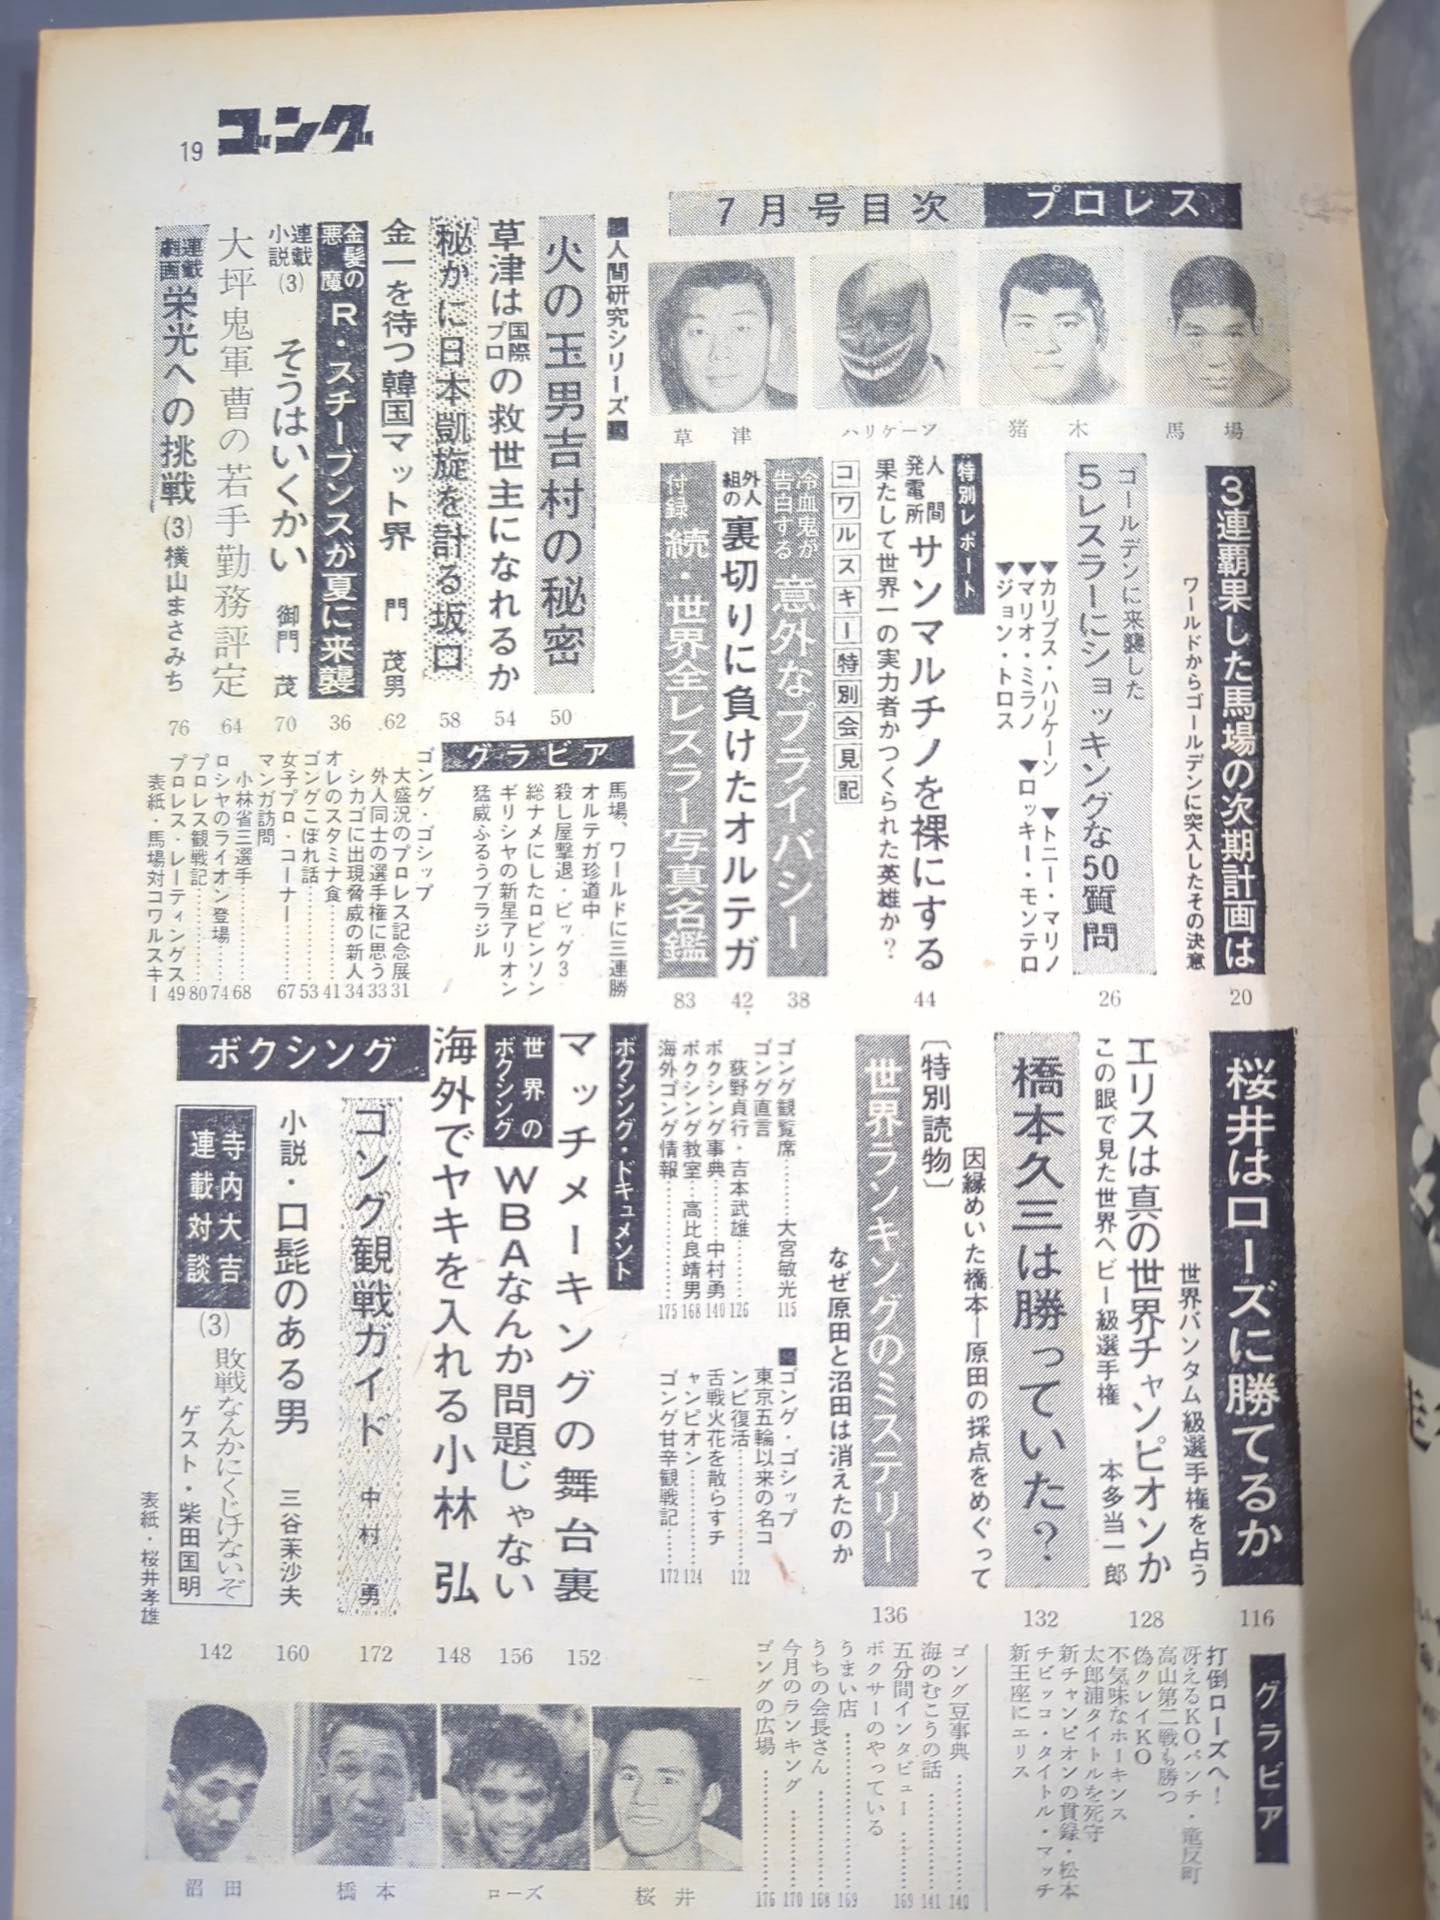 ゴング
19
プロレス
7月号目次
馬場
猪木
ハリケーン
草津
3連覇果した馬場の次期計画は
ワールドからゴールデンに突入したその決意
20
ゴールデンに来襲した
5レスラーにショッキングな50質問
▼カリプス・ハリケーン ▼トニー・マリノ
▼マリオ・ミラノ ▼ロッキー・モンテロ
▼ジョン・トロス
26
特別レポート
人間発電所サンマルチノを裸にする
果たして世界一の実力者かつくられた英雄か?
44
コワルスキー特別会見記
冷血鬼が告白する 意外なプライバシー
38
外人組の裏切りに負けたオルテガ
42
付録 続・世界全レスラー写真名鑑
83
■人間研究シリーズ■
火の玉男吉村の秘密
50
草津は国際プロの救世主になれるか
54
秘かに日本凱旋を計る坂口
58
金一を待つ韓国マット界 門 茂男
62
金髪の悪魔 R・スチーブンスが夏に来襲
36
連載小説(3) そうはいくかい 御門 茂
70
大坪鬼軍曹の若手勤務評定
64
連載劇画 栄光への挑戦(3) 横山まさみち
76
グラビア
馬場、ワールドに三連勝
オルテガ珍道中
殺し屋撃退・ビッグ3
総ナメにしたロビンソン
ギリシヤの新星アリオン
猛威ふるうブラジル
ゴング・ゴシップ
大盛況のプロレス記念展 31
外人同士の選手権に思う 33
シカゴに出現脅威の新人 34
オレのスタミナ食………41
ゴングこぼれ話…………53
女子プロ・コーナー……67
マンガ訪問
小林省三選手……………68
ロシヤのライオン登場…74
プロレス観戦記…………80
プロレス・レーティングス 49
表紙・馬場対コワルスキー
桜井はローズに勝てるか
世界バンタム級選手権を占う
116
エリスは真の世界チャンピオンか
この眼で見た世界ヘビー級選手権 本多当一郎
128
橋本久三は勝っていた?
因縁めいた橋本―原田の採点をめぐって
132
〔特別読物〕
世界ランキングのミステリー
なぜ原田と沼田は消えたのか
136
ゴング観覧席………大宮敏光 115
ゴング直言
荻野貞行・吉本武雄………126
ボクシング事典……中村勇 140
ボクシング教室…高比良靖男 168
海外ゴング情報……………175
■ゴング・ゴシップ
東京五輪以来の名コンビ復活………122
舌戦火花を散らすチャンピオン………124
ゴング甘辛観戦記………172
ボクシング・ドキュメント
マッチメーキングの舞台裏
152
世界のボクシング WBAなんか問題じゃない
156
海外でヤキを入れる小林 弘
148
ボクシング
ゴング観戦ガイド 中村 勇
172
小説・口髭のある男 三谷茉沙夫
160
寺内大吉連載対談(3) 敗戦なんかにくじけないぞ
ゲスト・柴田国明
142
表紙・桜井孝雄
グラビア
打倒ローズへ!
冴えるKOパンチ・竜反町
高山第二戦も勝つ
偽クレイKO
不気味なホーキンス
太郎浦タイトルを死守
新チャンピオンの貫録・松本
チビッコ・タイトル・マッチ
新王座にエリス
ゴング豆事典………140
海のむこうの話………141
五分間インタビュー………169
ボクサーのやっている
うまい店………169
うちの会長さん………168
今月のランキング………170
ゴングの広場………176
沼田
橋本
ローズ
桜井